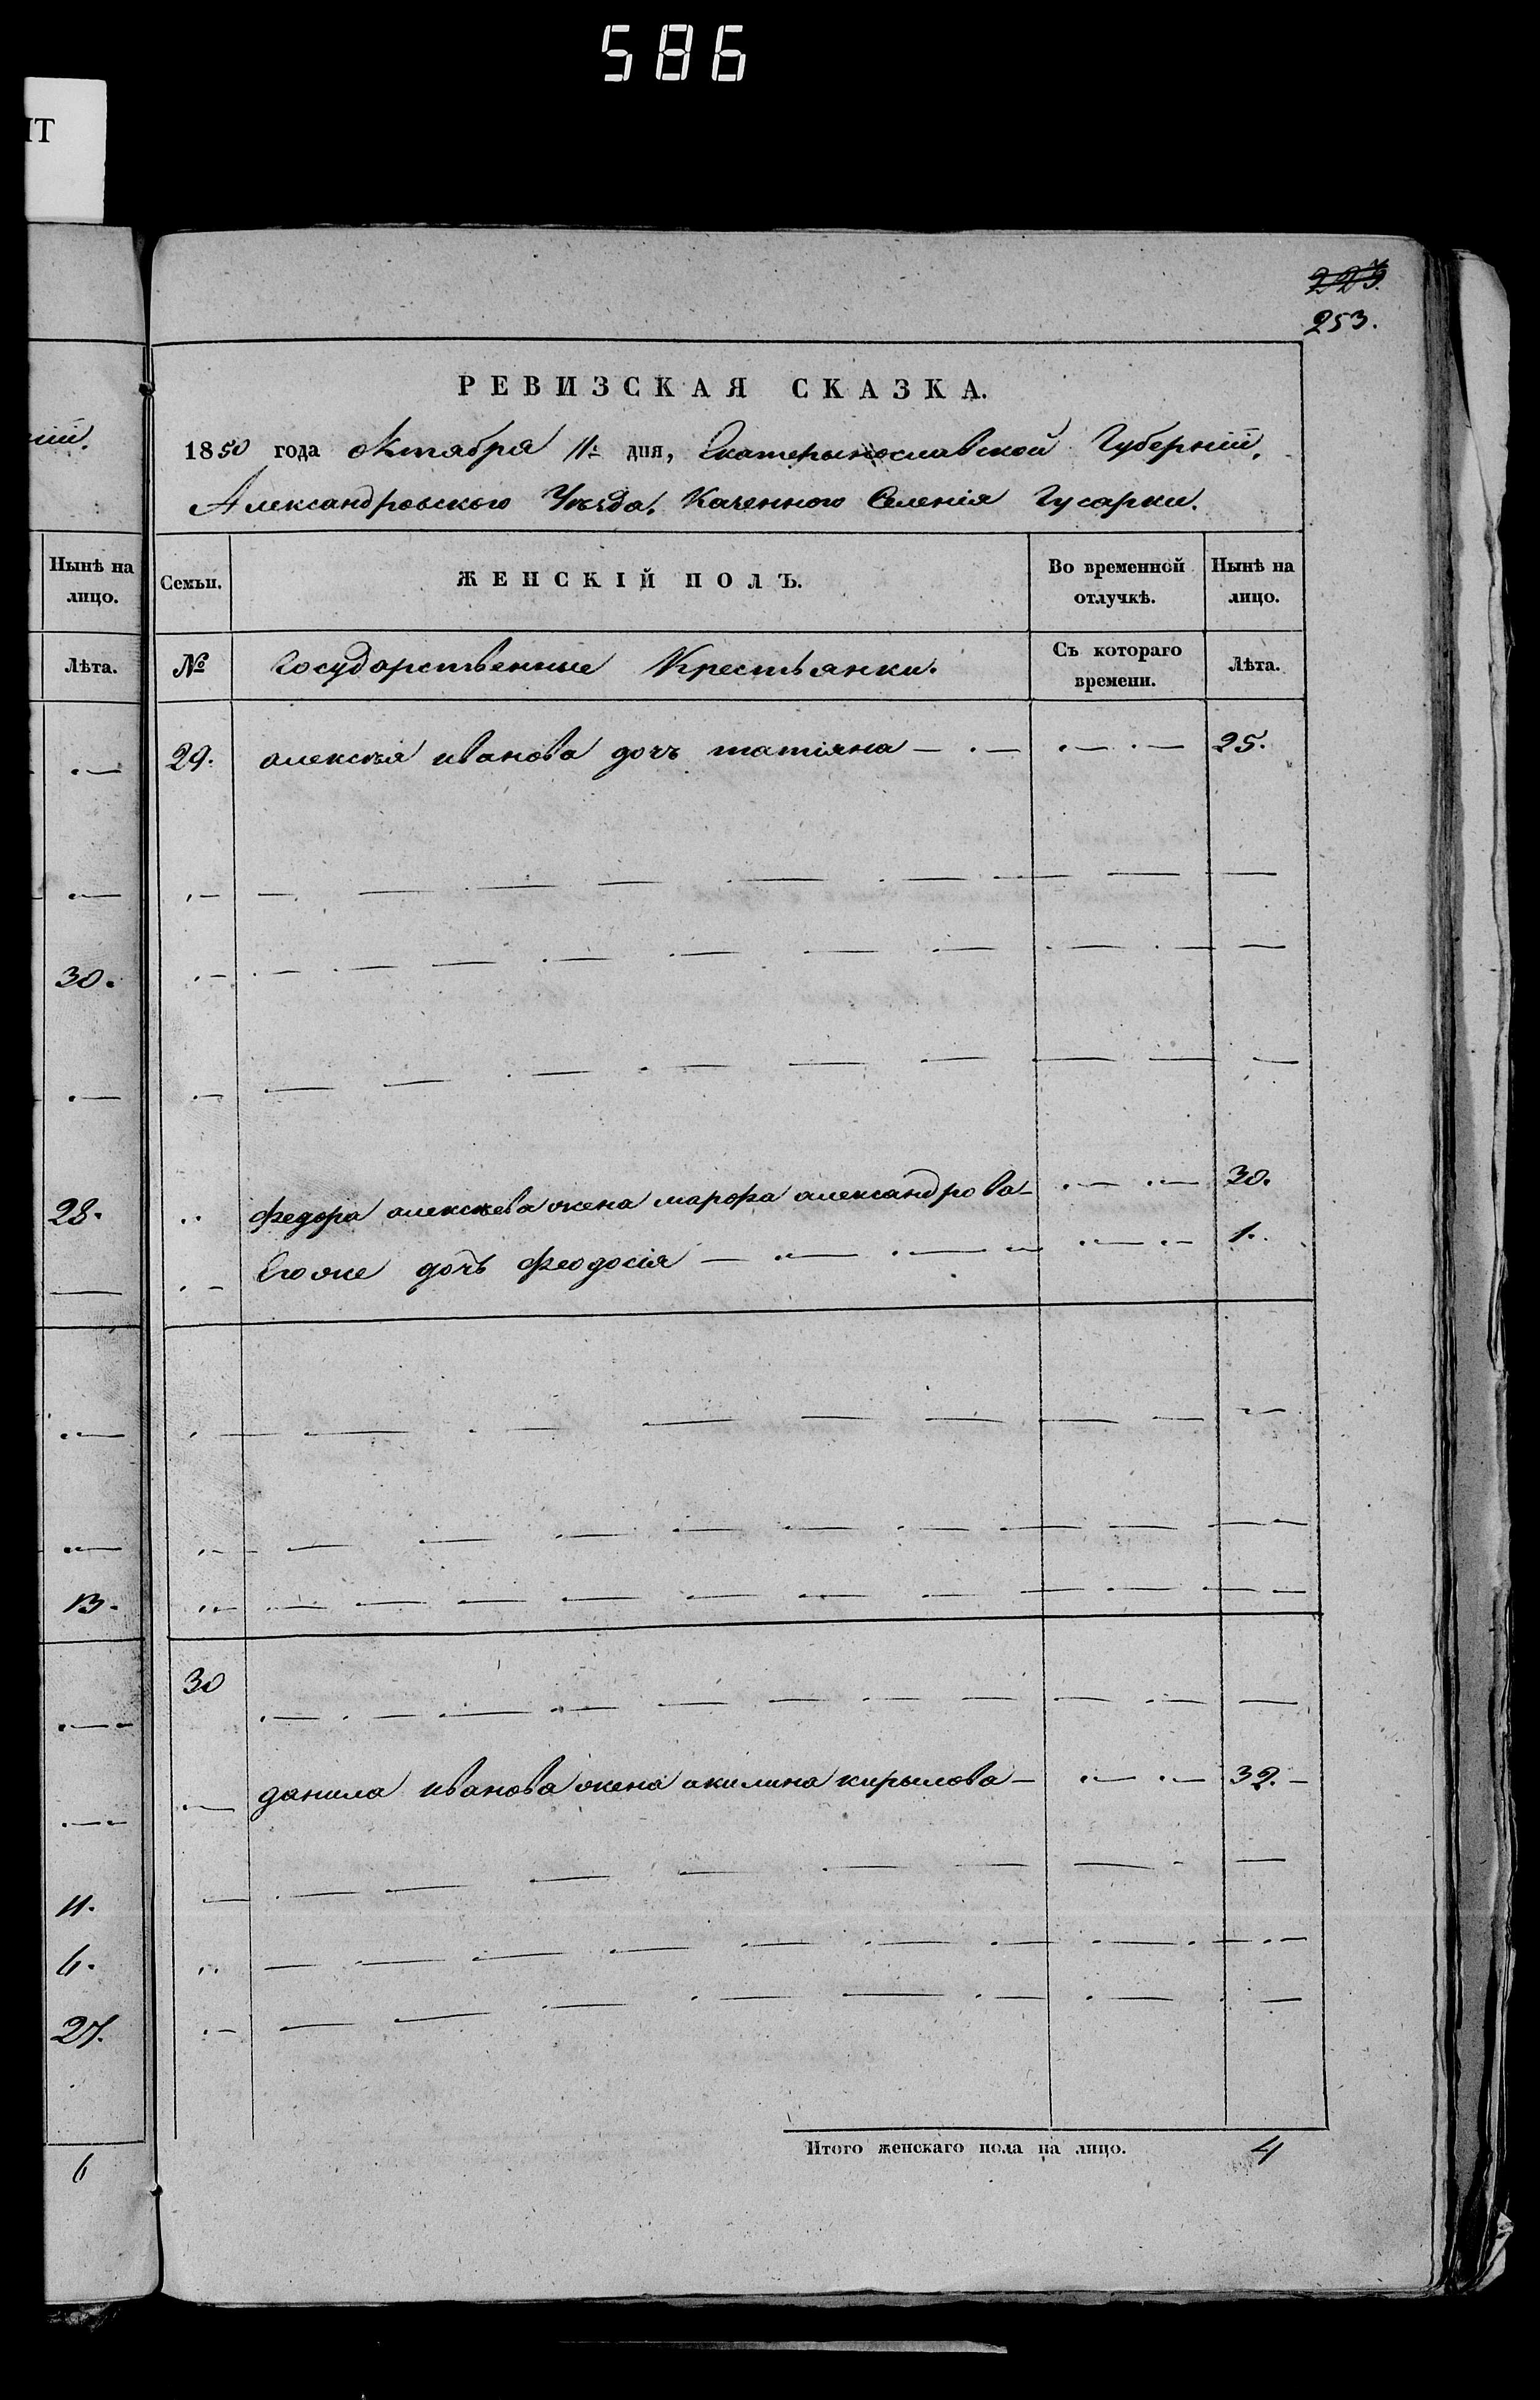 586
ІТ
ніи.
Нынѣ на
лицо.
Лѣта.
30.
28.
13.
11.
6.
27.
6
253.
РЕВИЗСКАЯ СКАЗКА.
1850 года октября 11: дня, Екатерынославской Губерніи,
Александровского Уѣзда, Казенного Селенія Гусарки.
Семьи.
ЖЕНСКІЙ ПОЛЪ.
Во временной
отлучкѣ.
Нынѣ на
лицо.
№
Государственные Крестьянки.
Съ котораго
времени.
Лѣта.
29. алексѣя иванова дочъ татіяна 25.
федора алексѣева жена марфа александрова 30.
Егоже дочъ феодосія 1.
30
данила иванова жена акилина кирылова 32.
Итого женскаго пола на лицо. 4